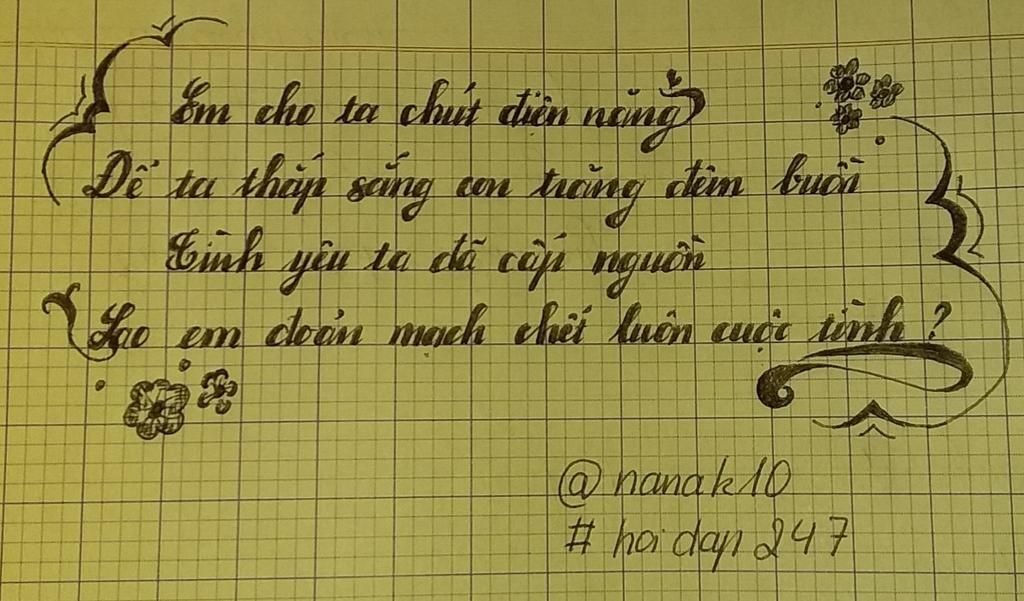 Em cho ta chút điện năng
Để ta thắp sáng con trăng đêm buồn
Tình yêu ta đã cấp nguồn
Sao em đoản mạch chết luôn cuộc tình ?
@nanak10
#hoidap247